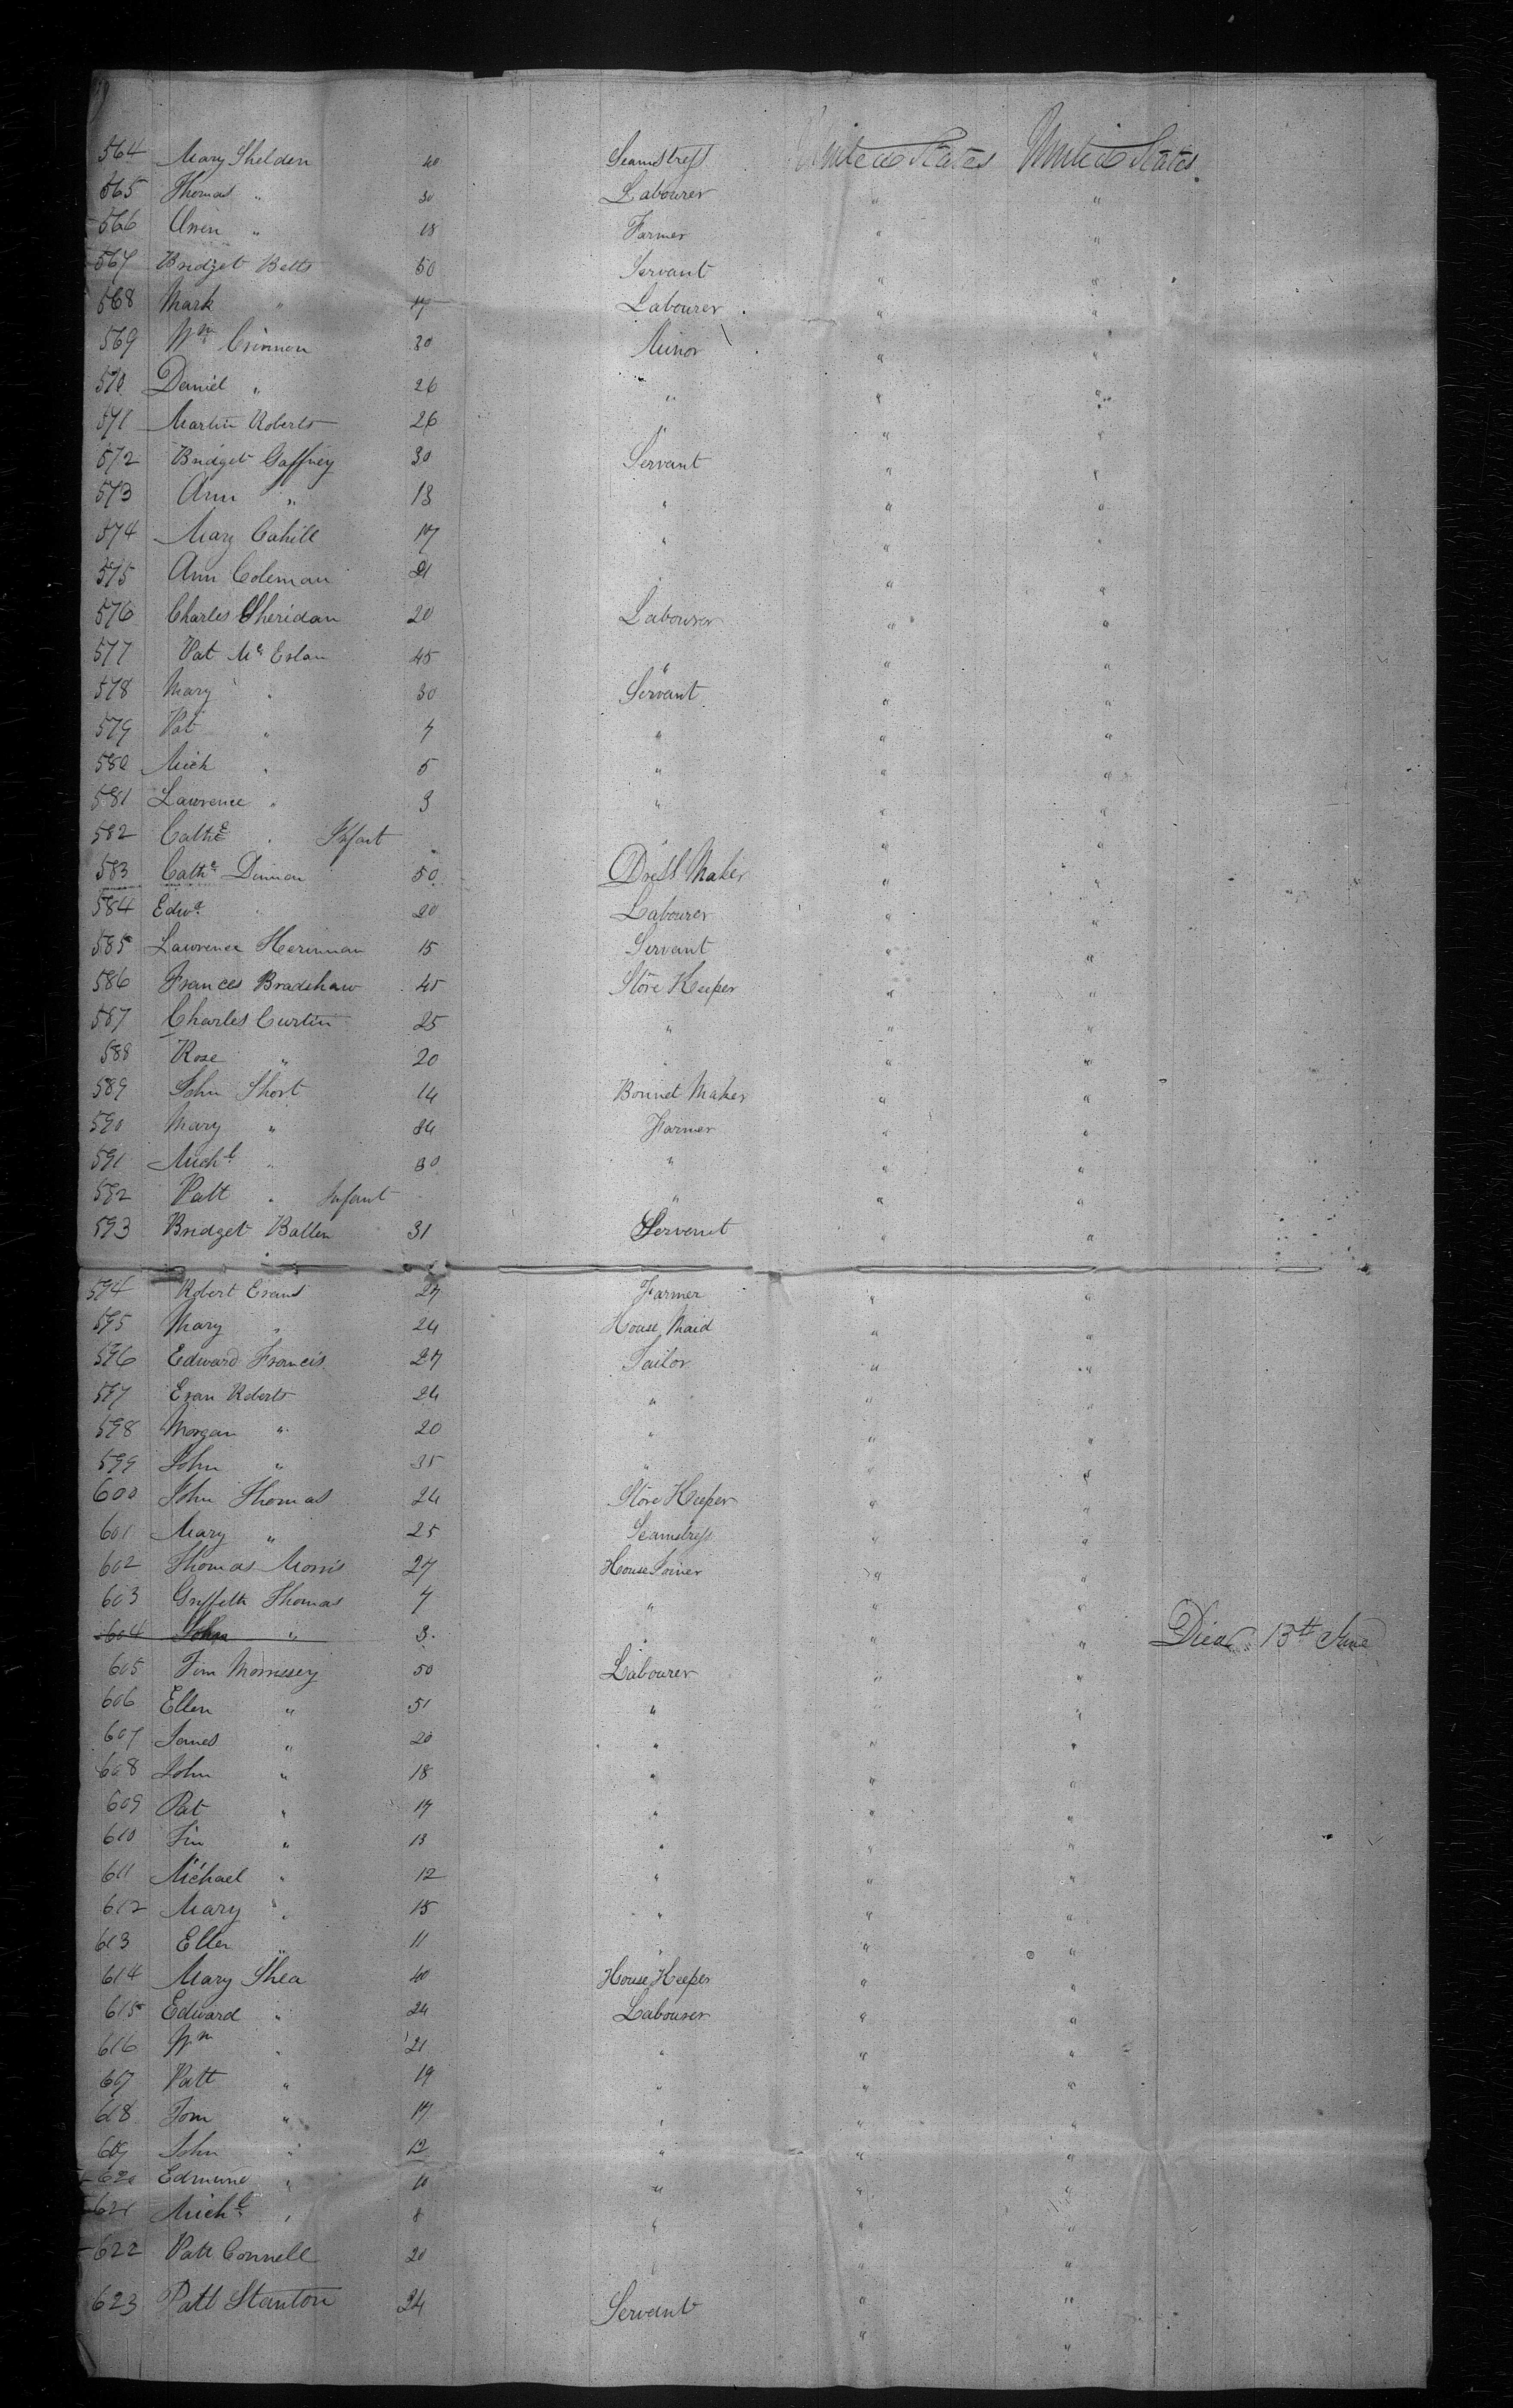 564 Mary Shelden 40 Seamstress United States United States
565 Thomas " 30 Labourer " "
566 " 18 Farmer " "
567 Bridget Betts 50 Servant " "
568 Mark " 17 Labourer " "
569 Wm Crinnon 30 Minor " "
570 Daniel " 26 " " "
571 Martin Roberts 26 " " "
572 Bridget Gaffney 30 Servant " "
573 Ann " 18 " " "
574 Mary Cahill 17 " " "
575 Ann Coleman 21 " " "
576 Charles Sheridan 20 Labourer " "
577 Pat Mc Eslan 45 " " "
578 Mary " 30 Servant " "
579 Pat " 7 " " "
580 Mich " 5 " " "
581 Lawrence " 3 " " "
582 Cathe " Infant " " "
583 Cathe Dinnan 50 Dress Maker " "
584 Edwd " 20 Labourer " "
585 Lawrence 15 Servant " "
586 Frances Bradshaw 45 Store Keeper " "
587 Charles Curtin 25 " " "
588 Rose " 20 " " "
589 John Short 14 Bonnet Maker " "
590 Mary " 34 Farmer " "
591 Michl " 30 " " "
592 Patt " Infant " " "
593 Bridget Ballen 31 Servent " "
594 Robert Evans 27 Farmer " "
595 Mary " 24 House Maid " "
596 Edward Francis 27 Tailor " "
597 Evan Roberts 24 " " "
598 Morgan " 20 " " "
599 John " 35 " " "
600 John Thomas 24 Store Keeper " "
601 Mary " 25 Seamstress " "
602 Thomas Morris 27 House Joiner " "
603 Griffeth Thomas 7 " " "
604 John " 3 " " " Died 13th June
605 Tim Morrissey 50 Labourer " "
606 Ellen " 51 " " "
607 James " 20 " " "
608 John " 18 " " "
609 Pat " 17 " " "
610 Tim " 13 " " "
611 Michael " 12 " " "
612 Mary " 15 " " "
613 Ellen " 11 " " "
614 Mary Shea 40 House Keeper " "
615 Edward " 24 Labourer " "
616 Wm " 21 " " "
617 Patt " 19 " " "
618 Tom " 17 " " "
619 John " 12 " " "
620 Edmund " 10 " " "
621 Michl " 8 " " "
622 Patt Connell 20 " " "
623 Patt Stanton 24 Servant " "
" "